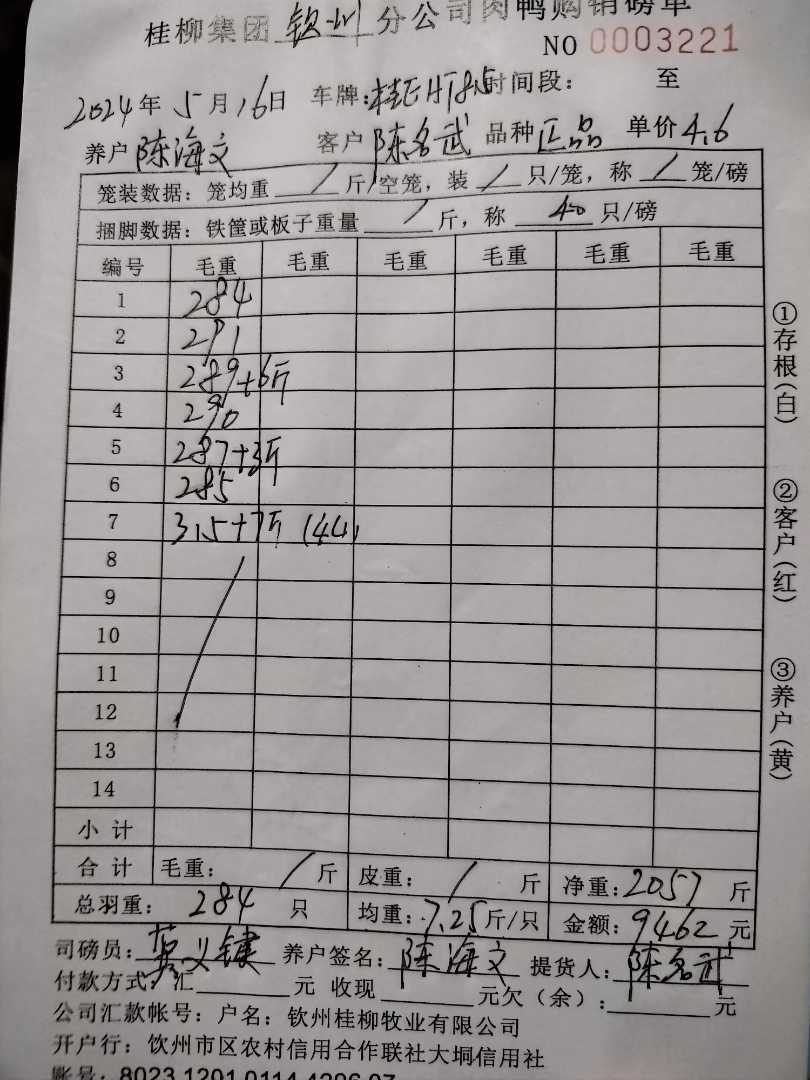 桂柳集团 钦州 分公司肉鸭购销磅单
NO 0003221
2024年5月16日 车牌: 时间段: 至
养户 陈海文 客户 陈名武 品种 正品 单价4.6
笼装数据: 笼均重 / 斤/空笼, 装 / 只/笼, 称 / 笼/磅
捆脚数据: 铁筐或板子重量 / 斤, 称 40 只/磅
编号 毛重 毛重 毛重 毛重 毛重 毛重
1 284
2 291
3 289+6斤
4 290
5 287+3斤
6 285
7 315+7斤 (44)
8
9
10
11
12
13
14
小计
合计 毛重: / 斤 皮重: / 斤 净重: 2057 斤
总羽重: 284 只 均重: 7.25斤/只 金额: 9462 元
司磅员: 养户签名: 陈海文 提货人: 陈名武
付款方式: 汇 元 收现 元欠(余): 元
公司汇款帐号: 户名: 钦州桂柳牧业有限公司
开户行: 钦州市区农村信用合作联社大垌信用社
账号: 8023 1201 0114 4296 07
①存根(白)
②客户(红)
③养户(黄)